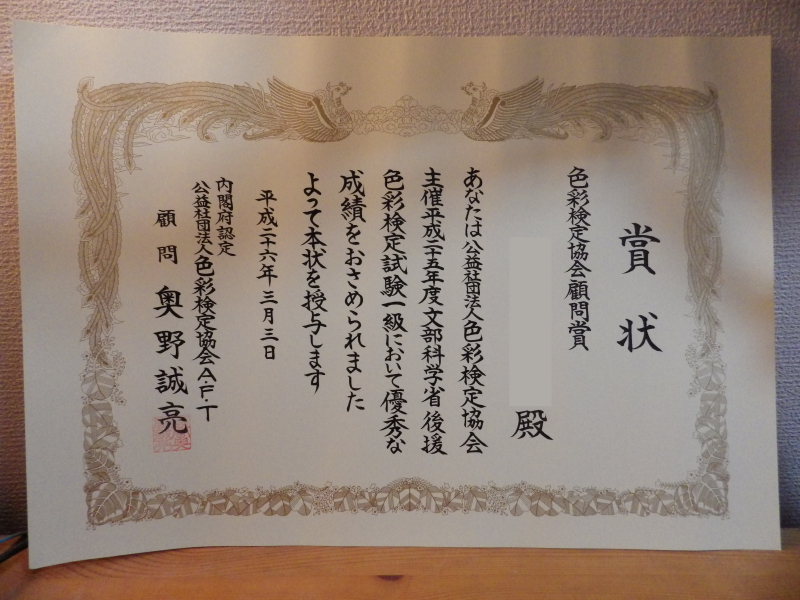 賞状
色彩検定協会顧問賞
殿
あなたは公益社団法人色彩検定協会
主催平成二十五年度文部科学省後援
色彩検定試験一級において優秀な
成績をおさめられました
よって本状を授与します
平成二十六年三月三日
内閣府認定
公益社団法人色彩検定協会A・F・T
顧問 奥野誠亮